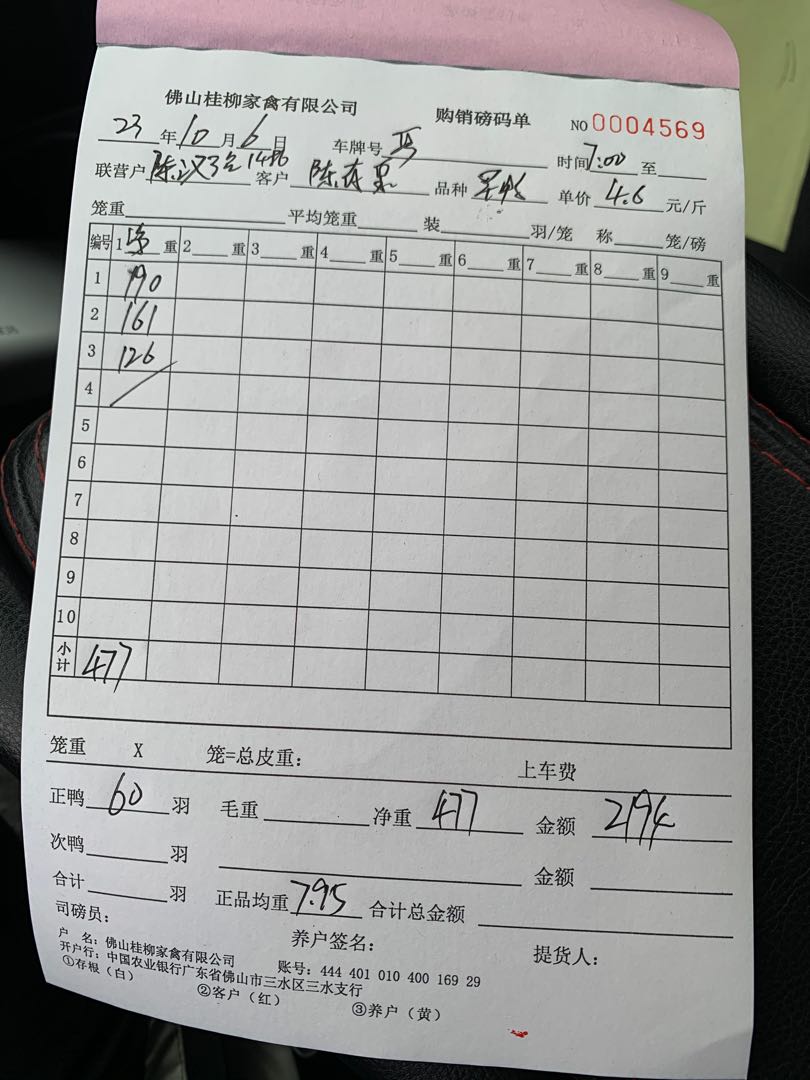 佛山桂柳家禽有限公司 购销磅码单 NO 0004569
23年10月6日 车牌号 时间7:00至
联营户 陈汉 1486 客户 陈 品种 单价 4.6 元/斤
笼重 平均笼重 装 羽/笼 称 笼/磅
编号 1 重 2 重 3 重 4 重 5 重 6 重 7 重 8 重 9 重
1 190
2 161
3 126
4
5
6
7
8
9
10
小计 477
笼重 X 笼=总皮重: 上车费
正鸭 60 羽 毛重 净重 477 金额 2194
次鸭 羽 金额
合计 羽 正品均重 7.95 合计总金额
司磅员: 养户签名: 提货人:
户 名: 佛山桂柳家禽有限公司 账号: 444 401 010 400 169 29
开户行: 中国农业银行广东省佛山市三水区三水支行
①存根（白） ②客户（红） ③养户（黄）